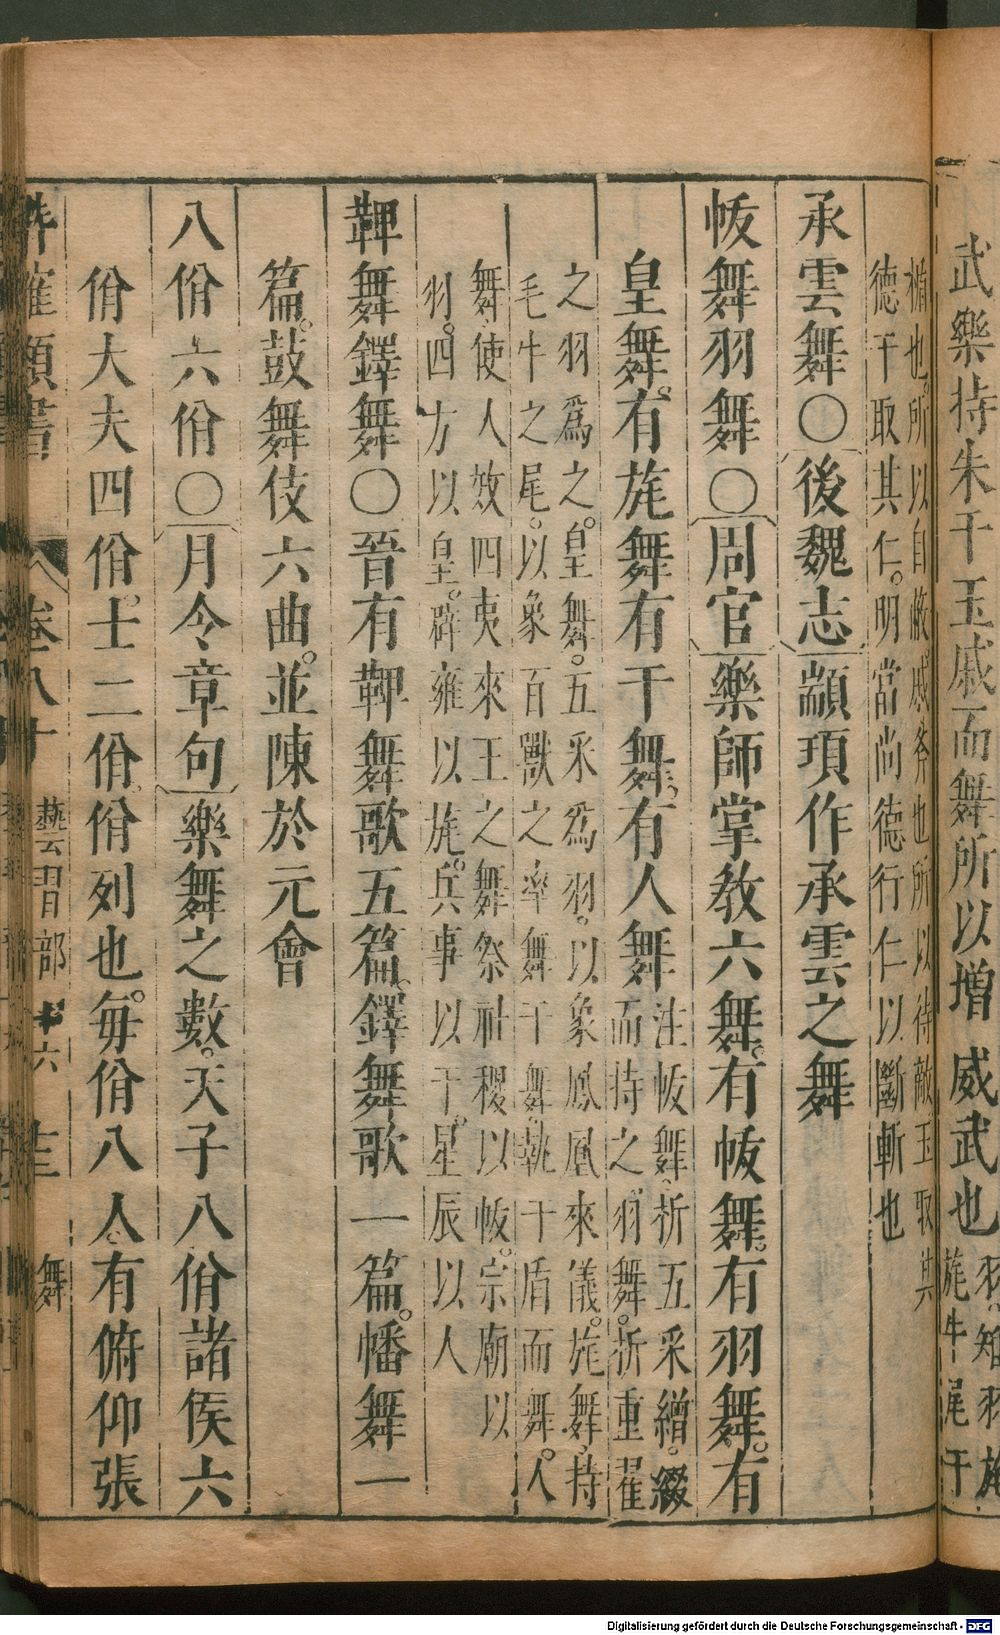 武樂持朱干玉戚而舞所以增威武也
羽知羽旄
旄牛尾干
楯也所以自蔽戚斧也所以待敵玉取其
德干取其仁明當尚德行仁以斷斬也
承雲舞〇後魏志顓頊作承雲之舞
帗舞羽舞〇周官樂師掌教六舞有帗舞有羽舞有
皇舞有旄舞有干舞有人舞
注帗舞析五采繒綴
而持之羽舞析重翟
之羽爲之皇舞五采爲羽以象鳳凰來儀旄舞持
毛牛之尾以象百獸之率舞干舞執干盾而舞人
舞使人效四夷來王之舞祭社稷以帗宗廟以
羽四方以皇辟雍以旄兵事以干星辰以人
鞞舞鐸舞〇晉有鞞舞歌五篇鐸舞歌一篇幡舞一
篇鼓舞伎六曲並陳於元會
八佾六佾〇月令章句樂舞之數天子八佾諸侯六
佾大夫四佾士二佾佾列也每佾八人有俯仰張
類書 卷八十 藝習部十六 十三 舞
Digitalisierung gefördert durch die Deutsche Forschungsgemeinschaft - DFG